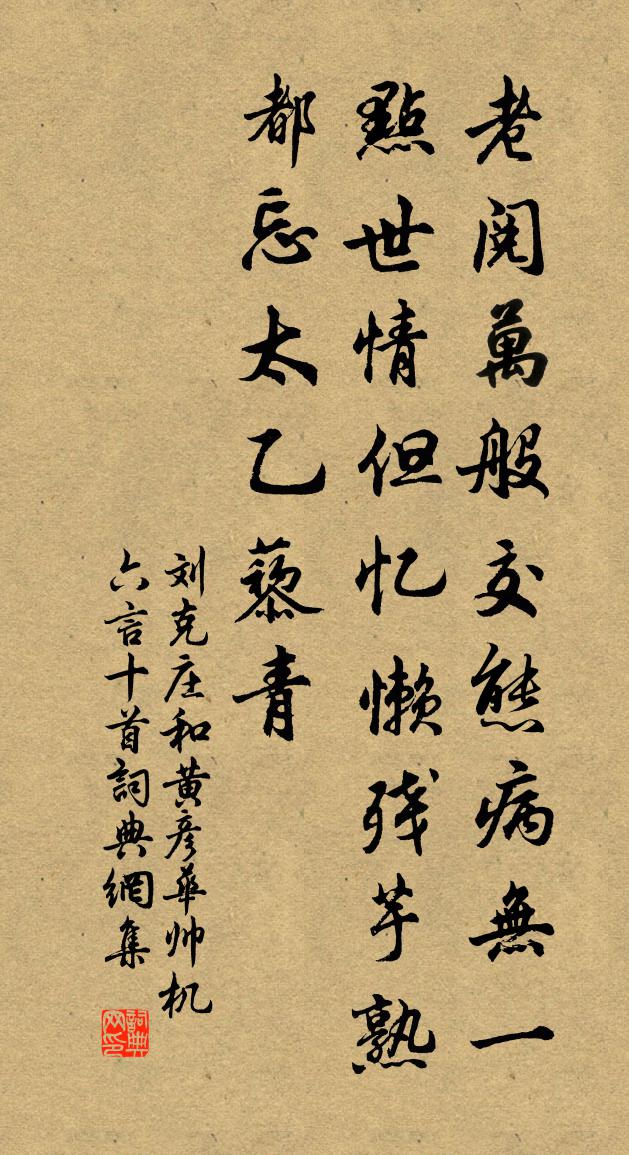 老閱萬般交態病無一
點世情但忆懒残芋熟
都忘太乙藜青
刘克庄和黄彦華帅机
六言十首詞典網集
詞典网印